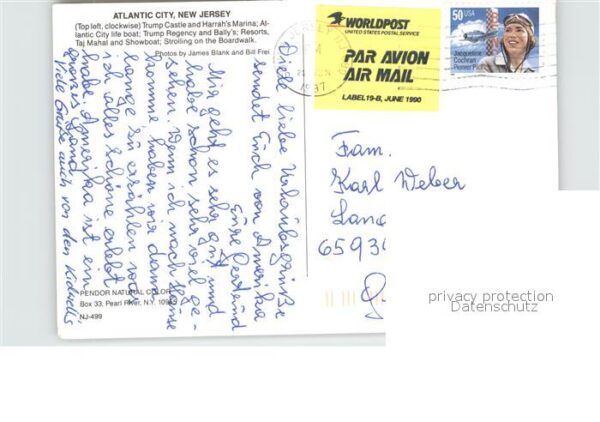 ATLANTIC CITY, NEW JERSEY
(Top left, clockwise) Trump Castle and Harrah's Marina; At-
lantic City life boat; Trump Regency and Bally's; Resorts,
Taj Mahal and Showboat; Strolling on the Boardwalk.
Photos by James Blank and Bill Frei
Diese liebe Urlaubsgrüße
sendet Euch von Amerika
Eure Gertrud
Mir geht es sehr gut und
habe schon sehr viel ge-
sehen. Wenn ich nach Hause
komme haben wir dann
lange zu erzählen was
ich alles schöne erlebt
habe. Amerika ist ein
ganzes Land
Viele Grüße auch von den
PENDOR NATURAL COLOR
Box 33, Pearl River, N.Y. 10965
NJ-499
WORLDPOST
UNITED STATES POSTAL SERVICE
PAR AVION
AIR MAIL
LABEL 19-B, JUNE 1990
1997
50 USA
Jacqueline
Cochran
Pioneer Pilot
Fam.
Karl Weber
6593
privacy protection
Datenschutz